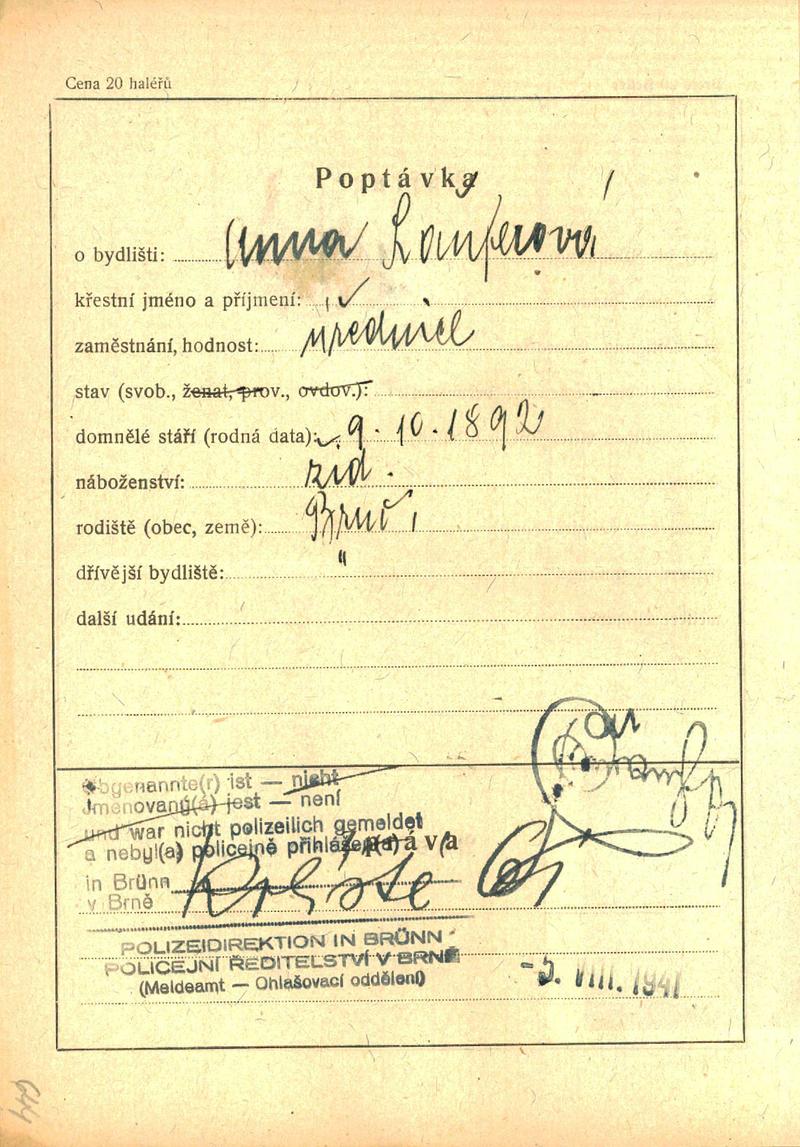 Cena 20 haléřů
Poptávka
o bydlišti: Anna Lauferová
křestní jméno a příjmení:
zaměstnání, hodnost:
stav (svob., ženat, prov., ovdov.):
domnělé stáří (rodná data): 9. 10. 1892
náboženství: žid.
rodiště (obec, země): Brno,
dřívější bydliště: "
další udání:
Obgenannte(r) ist — nicht
Jmenovaný(á) jest — není
und war nicht polizeilich gemeldet
a nebyl(a) policejně přihlášen(a)
Zpráva
in Brünn
v Brně
POLIZEIDIREKTION IN BRÜNN
POLICEJNÍ ŘEDITELSTVÍ V BRNĚ
(Meldeamt — Ohlašovací oddělení)
-5. VIII. 1941
644